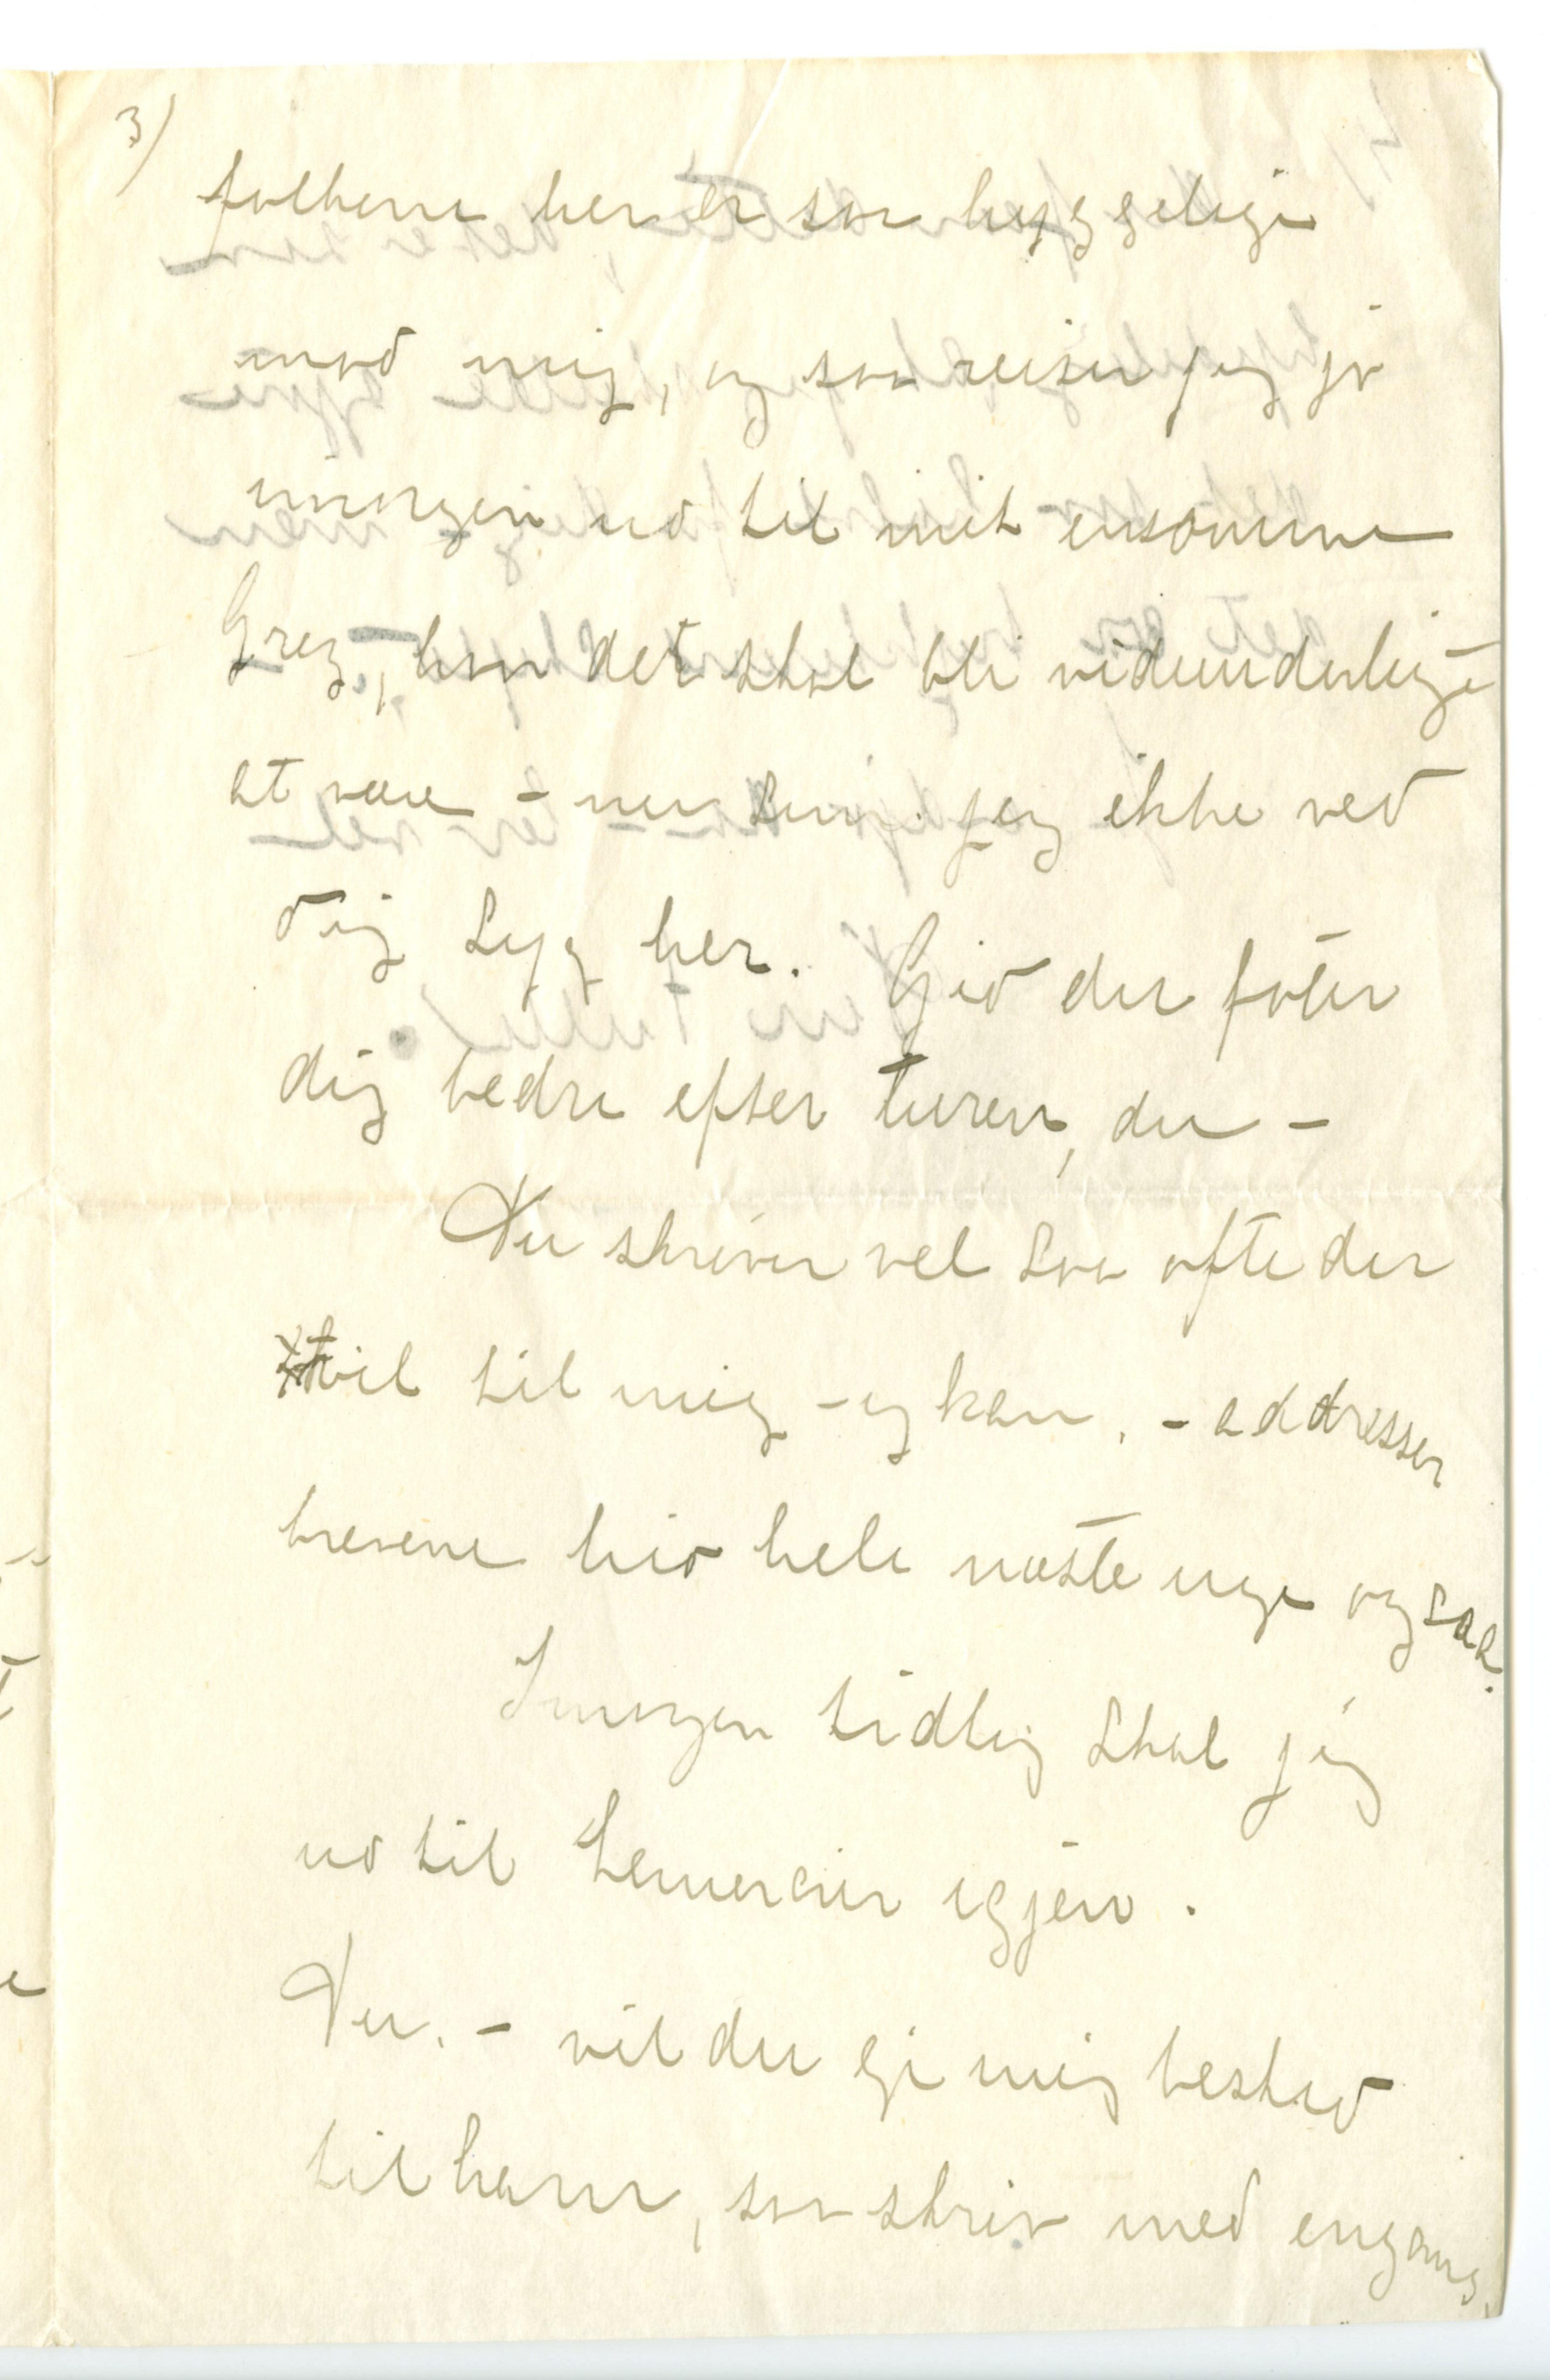 3)
folkene her er saa hyggelige
mod mig, og saa reiser jeg jo
imorgen ud til mit ensomme
Grez, hvor det skal bli vidunderligt
at være – nu som jeg ikke ved
dig syg her. Gid du føler
dig bedre efter turen, du –
Du skriver vel saa ofte du
vil til mig – og kan, – addresser
brevene hid hele næste uge ogsaa.
Imorgen tidlig skal jeg
ud til Lemercier igjen.
Du, – vil du gi mig besked
til ham, saa skriv med engang,